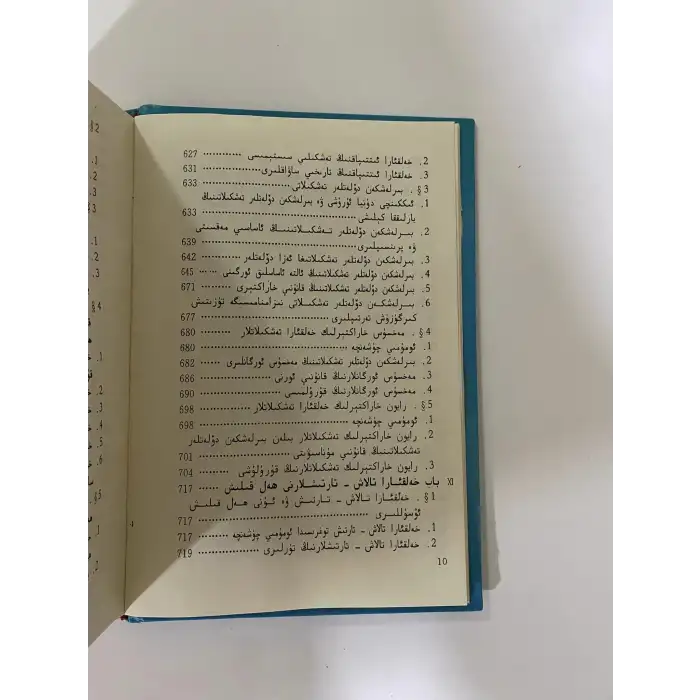 2. خەلقئارا ئىتتىپاقنىڭ تەشكىلىي سىستېمىسى ············ 627
3. خەلقئارا ئىتتىپاقنىڭ تارىخىي ساۋاقلىرى ············ 631
3 §. بىرلەشكەن دۆلەتلەر تەشكىلاتى ············ 633
1. ئىككىنچى دۇنيا ئۇرۇشى ۋە بىرلەشكەن دۆلەتلەر تەشكىلاتىنىڭ
بارلىققا كېلىشى ············ 633
2. بىرلەشكەن دۆلەتلەر تەشكىلاتىنىڭ ئاساسىي مەقسىتى
ۋە پرىنسىپلىرى ············ 639
3. بىرلەشكەن دۆلەتلەر تەشكىلاتىغا ئەزا دۆلەتلەر ············ 642
4. بىرلەشكەن دۆلەتلەر تەشكىلاتىنىڭ ئالتە ئاساسلىق ئورگىنى ······ 645
5. بىرلەشكەن دۆلەتلەر تەشكىلاتىنىڭ قانۇنىي خاراكتېرى ········· 671
6. بىرلەشكەن دۆلەتلەر تەشكىلاتى نىزامنامىسىگە تۈزىتىش
كىرگۈزۈش تەرتىپلىرى ············ 677
4 §. مەخسۇس خاراكتېرلىك خەلقئارا تەشكىلاتلار ············ 680
1. ئومۇمىي چۈشەنچە ············ 680
2. بىرلەشكەن دۆلەتلەر تەشكىلاتىنىڭ مەخسۇس ئورگانلىرى ······ 682
3. مەخسۇس ئورگانلارنىڭ قانۇنىي ئورنى ············ 686
4. مەخسۇس ئورگانلارنىڭ قۇرۇلمىسى ············ 690
5 §. رايون خاراكتېرلىك خەلقئارا تەشكىلاتلار ············ 698
1. ئومۇمىي چۈشەنچە ············ 698
2. رايون خاراكتېرلىك تەشكىلاتلار بىلەن بىرلەشكەن دۆلەتلەر
تەشكىلاتىنىڭ قانۇنىي مۇناسىۋىتى ············ 701
3. رايون خاراكتېرلىك تەشكىلاتلارنىڭ قۇرۇلۇشى ············ 704
XI باب خەلقئارا تالاش - تارتىشلارنى ھەل قىلىش ········· 717
1 §. خەلقئارا تالاش - تارتىش ۋە ئۇنى ھەل قىلىش
ئۇسۇللىرى ············ 717
1. خەلقئارا تالاش - تارتىش توغرىسىدا ئومۇمىي چۈشەنچە ········· 717
2. خەلقئارا تالاش - تارتىشلارنىڭ تۈرلىرى ············ 719
10